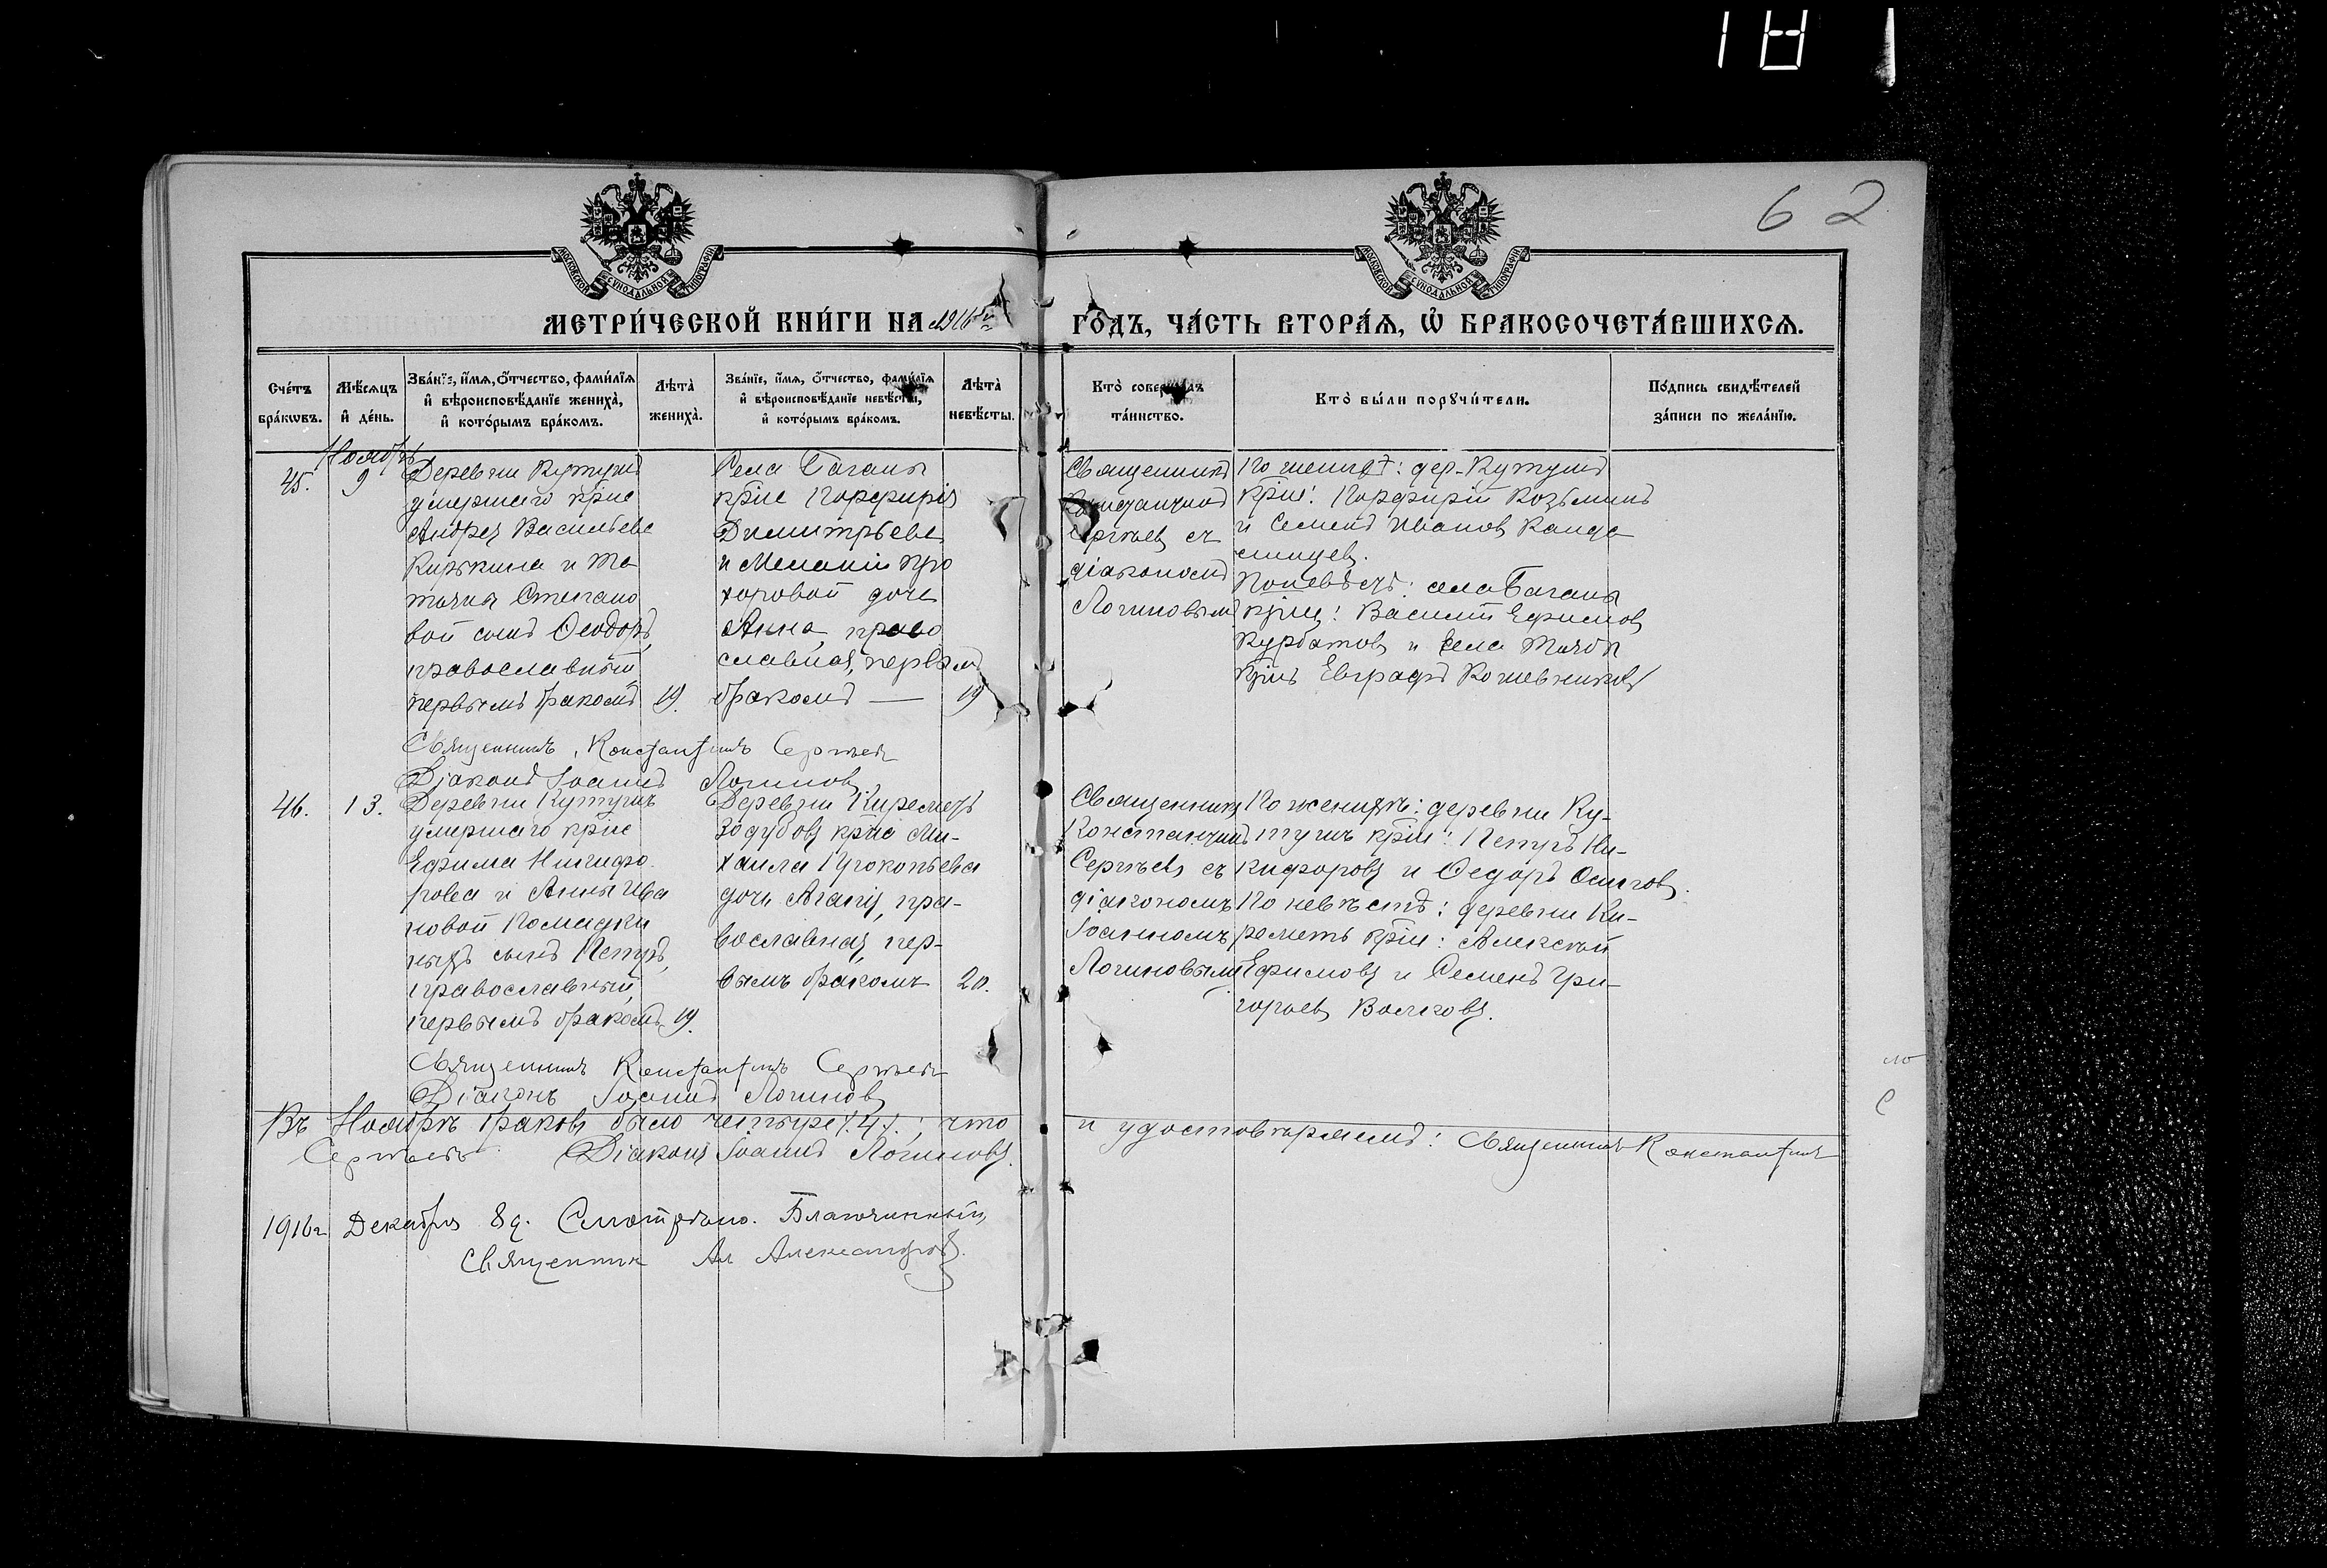 62
МОСКОВСКОЙ СУНОДАЛЬНОЙ ТИПОГРАФІИ
МОСКОВСКОЙ СУНОДАЛЬНОЙ ТИПОГРАФІИ
МЕТРИ́ЧЕСКОЙ КНИ́ГИ НА 1916й ГО́ДЪ, ЧА́СТЬ ВТОРА́Я, Ѡ БРАКОСОЧЕТА́ВШИХСЯ.
Сче́тъ
бра́кѡвъ.
Мѣ́сяцъ
и҆ де́нь.
Зва́нїе, и҆́мя, ѻ҆́тчество, фами́лїя
и҆ вѣроисповѣ́данїе жениха̀,
и҆ кото́рымъ бра́комъ.
Лѣта̀
жениха̀.
Зва́нїе, и҆́мя, ѻ҆́тчество, фами́лїя
и҆ вѣроисповѣ́данїе невѣ́сты,
и҆ кото́рымъ бра́комъ.
Лѣта̀
невѣ́сты.
Кто̀ соверша́лъ
та́инство.
Кто̀ бы́ли порꙋчи́тели.
По́дпись свидѣ́телей
за́писи по жела́нїю.
Ноябрь
45.
9
Деревни Кутушъ
умершаго крне
Андрея Васильева
Кирькина и Та
тьяны Степано
вой сынъ Ѳеодоръ,
православный
первымъ бракомъ
19.
Села Баганы
крне Порфирія
Димитріева
и Меланіи Про
хоровой дочь
Анна, право
славная, первымъ
бракомъ —
19
Священникъ
Константинъ
Сергѣевъ съ
діакономъ
Логиновымъ
По женихѣ: дер. Кутушъ
крне: Порфирій Козьминъ
и Семенъ Ивановъ Канда
линцевъ.
По невѣстѣ: села Баганы
крне: Василій Ефимовъ
Курбатовъ и села
крнъ Евграфъ Кожевниковъ
Священникъ Константинъ Сергѣевъ
Діаконъ Іоаннъ Логиновъ
46.
13.
Деревни Кутушъ
умершаго крне
Ефима Никифо
рова и Анны Ива
новой
ныхъ сынъ Петръ,
православный,
первымъ бракомъ
19.
Деревни Киреметь
крна Ми-
хаила Прокопьева
дочь Агапія, пра-
вославная, пер-
вымъ бракомъ
20.
Священникъ
Константинъ
Сергѣевъ съ
діакономъ
Іоанномъ
Логиновымъ
По женихѣ: деревни Ку-
тушъ крне: Петръ Ни-
кифоровъ и Ѳедоръ Осиповъ.
По невѣстѣ: деревни Ки-
реметь крне: Алексѣй
Ефимовъ и Семенъ Гри-
горьевъ Волковъ.
Священникъ Константинъ Сергѣевъ
Діаконъ Іоаннъ Логиновъ
Въ Ноябрѣ браковъ было четыре /.4./.; что и удостовѣряемъ: Священникъ Константинъ
Сергѣевъ. Діаконъ Іоаннъ Логиновъ.
1916 г. Декабря 8 д. Смотрѣно. Благочинный,
Священник Ал Александровъ.